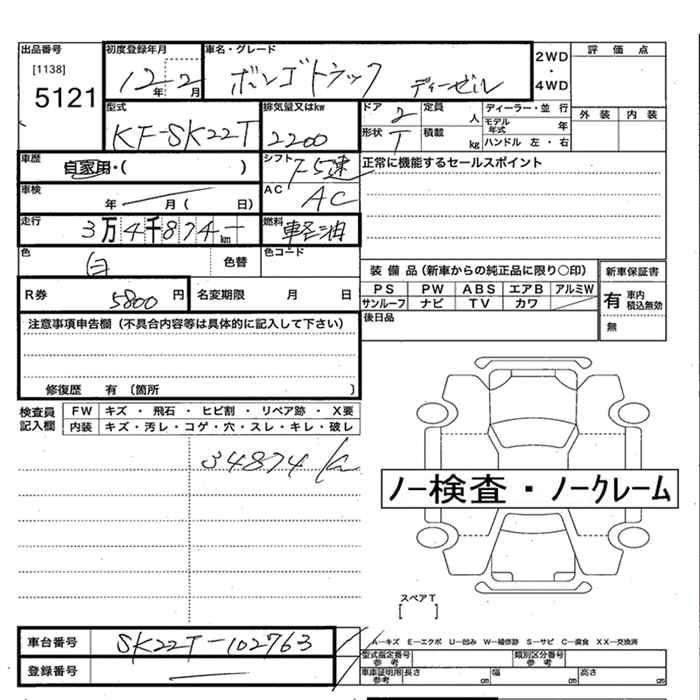 出品番号 初度登録年月 車名・グレード 2WD ・ 4WD 評 価 点
[1138]
5121 12年2月 ボンゴトラック ディーゼル
型式 排気量又はkw ドア 定員 ディーラー・並 行 外 装 内 装
KF-SK22T 2200 2 人 モデル年式 年
形状 T 積載 kg ハンドル 左 ・ 右
車歴 自家用・( ) シフト F5速 正常に機能するセールスポイント
車検 年 月 ( 日) AC AC
走行 3万4千874km 燃料 軽油
色 白 色替 色コード
装 備 品 (新車からの純正品に限り〇印) 新車保証書
R券 5800 円 名変期限 月 日 PS PW ABS エアB アルミW 有 車内積込無効
サンルーフ ナビ TV カワ
注意事項申告欄 (不具合内容等は具体的に記入して下さい) 後日品 無
修復歴 有 〔箇所 〕
検査員記入欄 FW キズ ・ 飛石 ・ ヒビ割 ・ リペア跡 ・ X要
内装 キズ・汚レ・コゲ・穴・スレ・キレ・破レ
34874 km
ノー検査・ノークレーム
スペアT
[ ]
車台番号 SK22T-102763 A—キズ E—エクボ U—凹み W—補修跡 S—サビ C—腐食 XX—交換済
型式指定番号 参 考 類別区分番号 参 考
登録番号 車庫証明用 参考 長さ cm 幅 cm 高さ cm